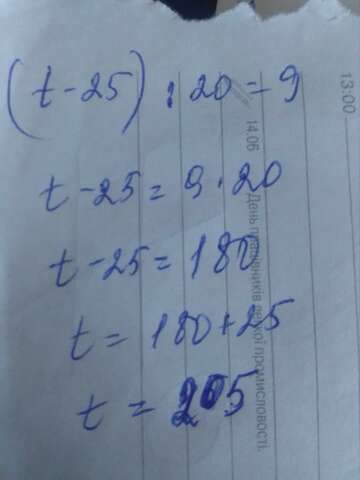 (t - 25) : 20 = 9
t - 25 = 9 · 20
t - 25 = 180
t = 180 + 25
t = 205
13:00
14.06 День працівників легкої промисловості.